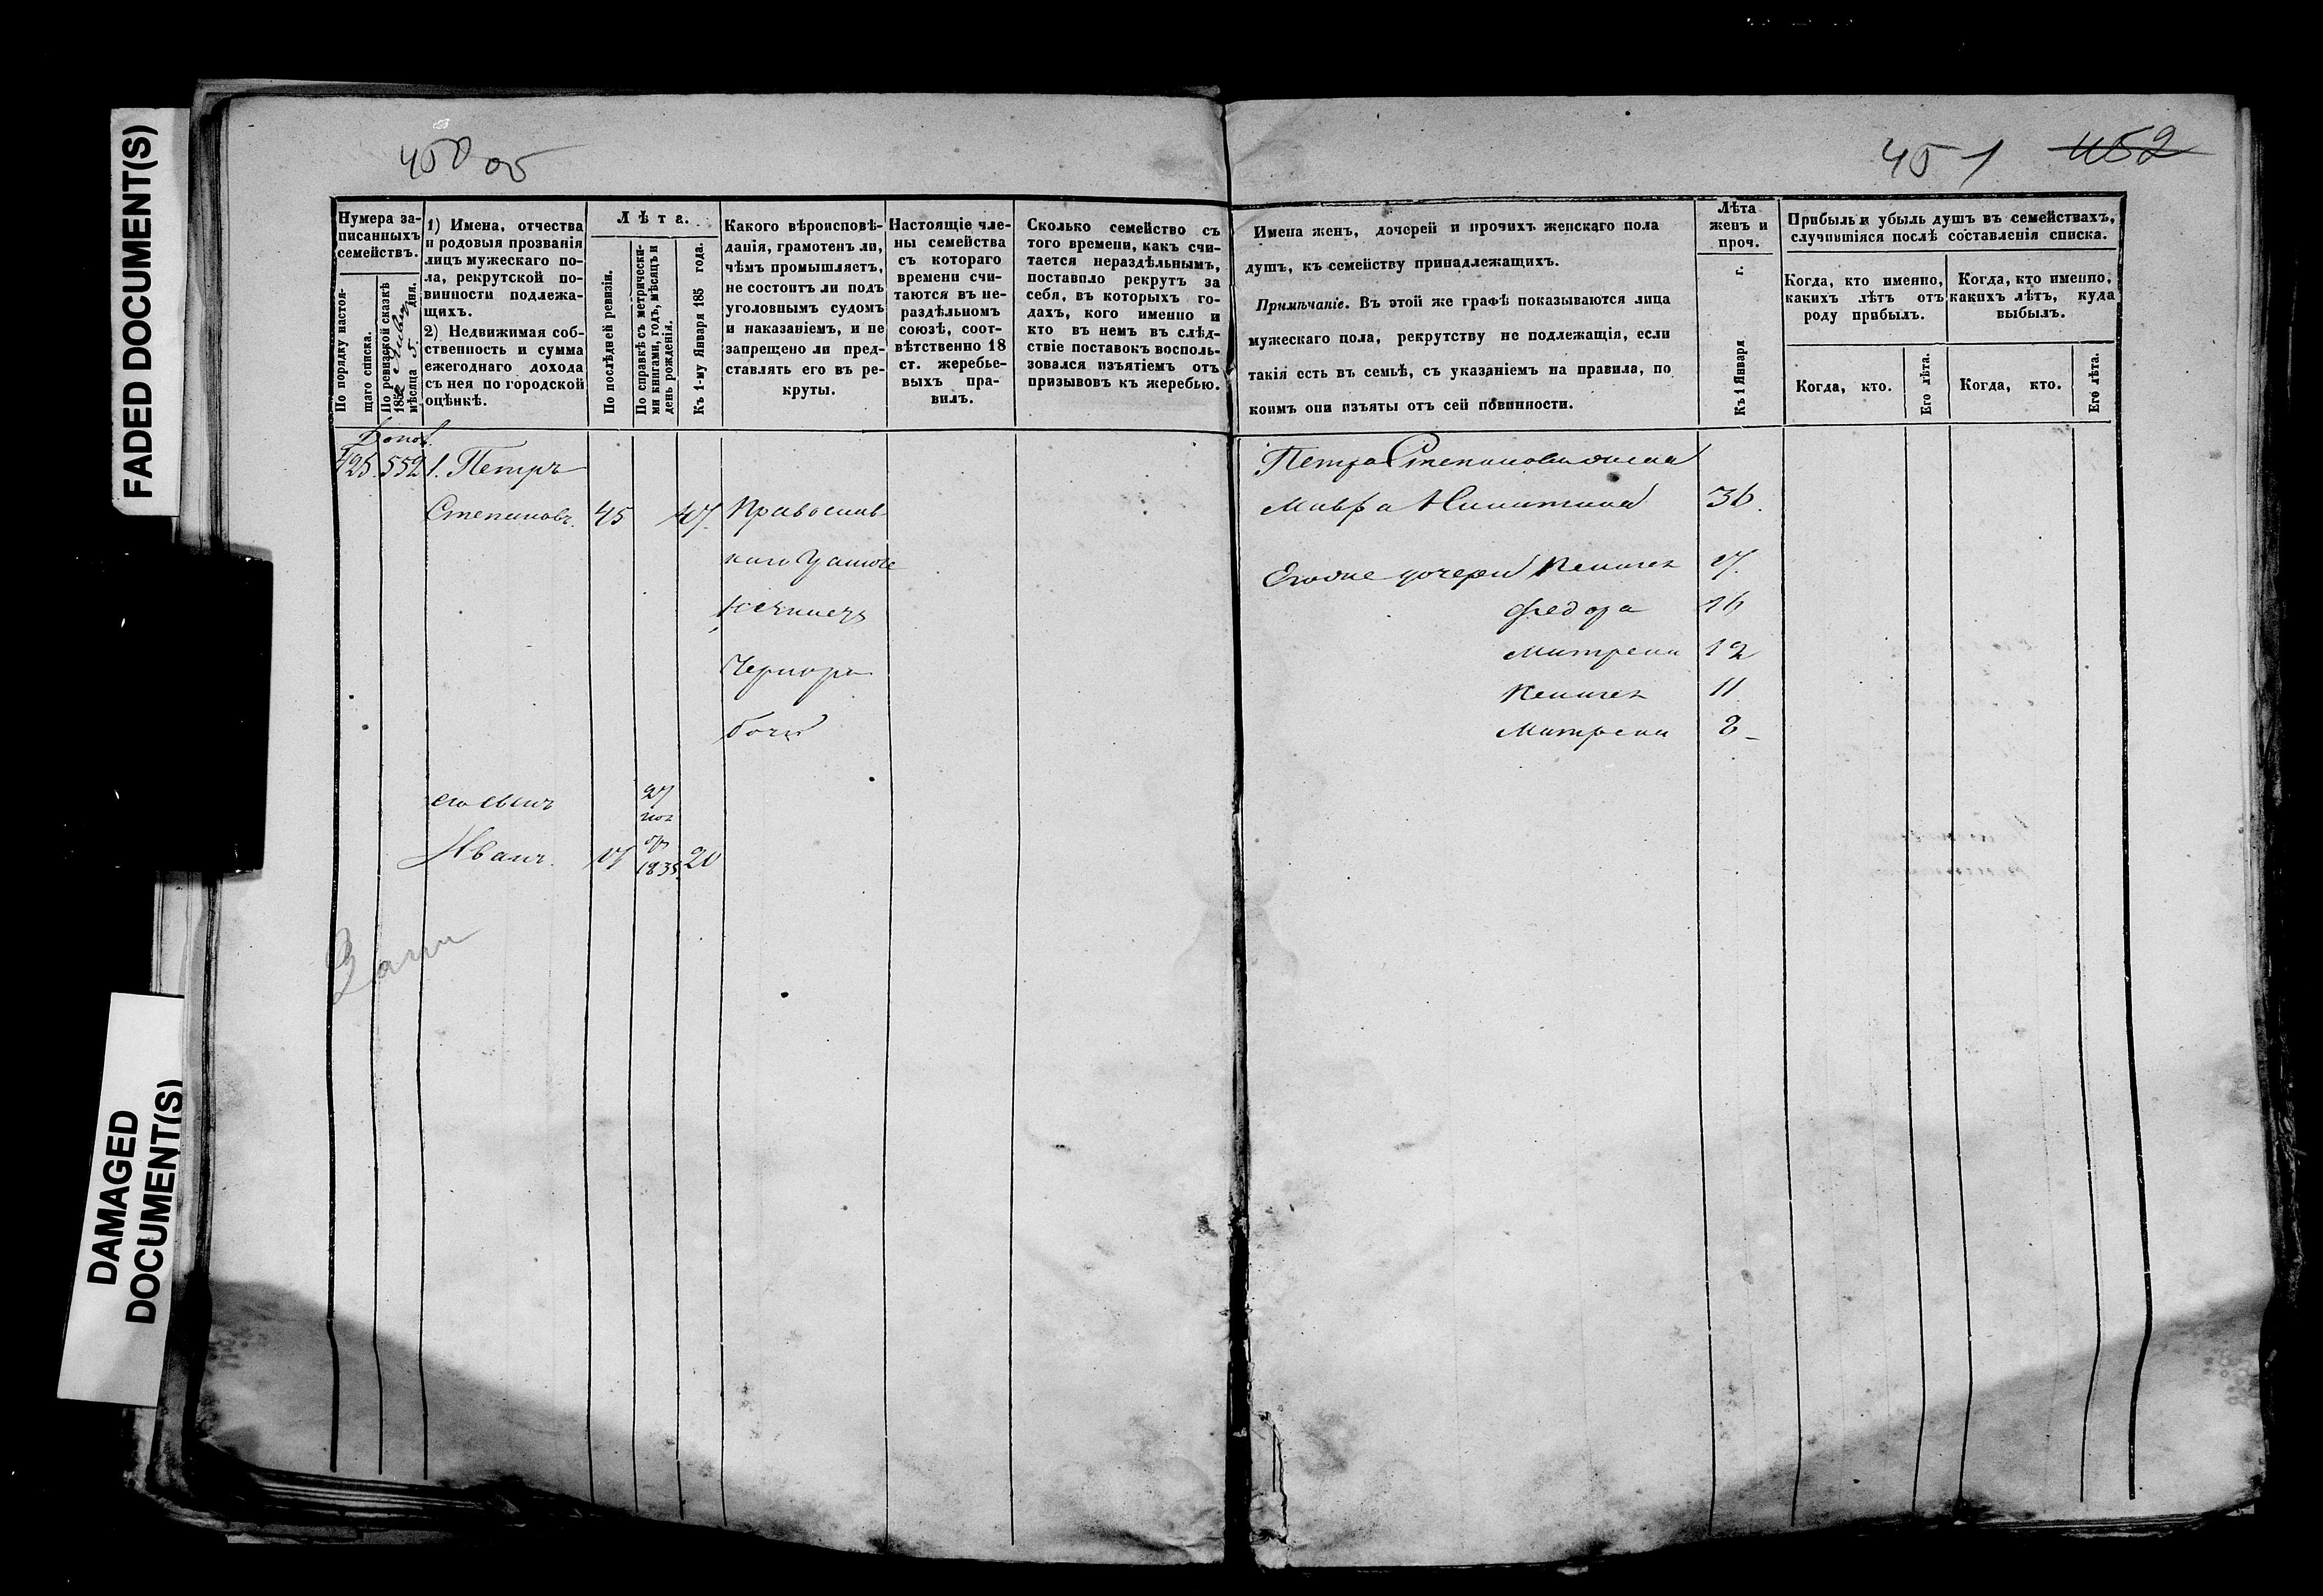 FADED DOCUMENT(S)
DAMAGED
DOCUMENT(S)
450 об
451 452
Нумера за-
писанныхъ
семействъ.
По порядку настоя-
щаго списка.
По ревизской сказкѣ
185
мѣсяца 5. дня.
1) Имена, отчества
и родовыя прозванія
лицъ мужескаго по-
ла, рекрутской по-
винности подлежа-
щихъ.
2) Недвижимая соб-
ственность и сумма
ежегоднаго дохода
съ нея по городской
оцѣнкѣ.
Лѣта.
По послѣдней ревизіи.
По справкѣ съ метрически-
ми книгами, годъ, мѣсяцъ и
день рожденія.
Къ 1-му Января 185 года.
Какого вѣроисповѣ-
данія, грамотенъ ли,
чѣмъ промышляетъ,
не состоитъ ли подъ
уголовнымъ судомъ
и наказаніемъ, и не
запрещено ли пред-
ставлять его въ ре-
круты.
Настоящіе чле-
ны семейства
съ котораго
времени счи-
таются въ не-
раздѣльномъ
союзѣ, соот-
вѣтственно 18
ст. жеребье-
выхъ пра-
вилъ.
Сколько семейство съ
того времени, какъ счи-
тается нераздѣльнымъ,
поставило рекрутъ за
себя, въ которыхъ го-
дахъ, кого именно и
кто въ немъ въ слѣд-
ствіе поставокъ восполь-
зовался изъятіемъ отъ
призывовъ къ жеребью.
Имена женъ, дочерей и прочихъ женскаго пола
душъ, къ семейству принадлежащихъ.
Примѣчаніе. Въ этой же графѣ показываются лица
мужескаго пола, рекрутству не подлежащія, если
такія есть въ семьѣ, съ указаніемъ на правила, по
коимъ они изъяты отъ сей повинности.
Лѣта
женъ и
проч.
Къ 1 Января г.
Прибыль и убыль душъ въ семействахъ,
случившіяся послѣ составленія списка.
Когда, кто именно,
какихъ лѣтъ отъ
роду прибылъ.
Когда, кто именно,
какихъ лѣтъ, куда
выбылъ.
Когда, кто.
Его лѣта.
Когда, кто.
Его лѣта.
425. 552 1. Петръ
Степановъ. 45 47. Православ-
наго
Чернора-
бочій
его сынъ 27
ноя
Иванъ. 17 бр 1835. 20
Петра Степанова жена
Мавра Никитина 36.
Его же дочери Пелагея 17.
Федора 16
Матрена 12
Пелагея 11
Матрена 8